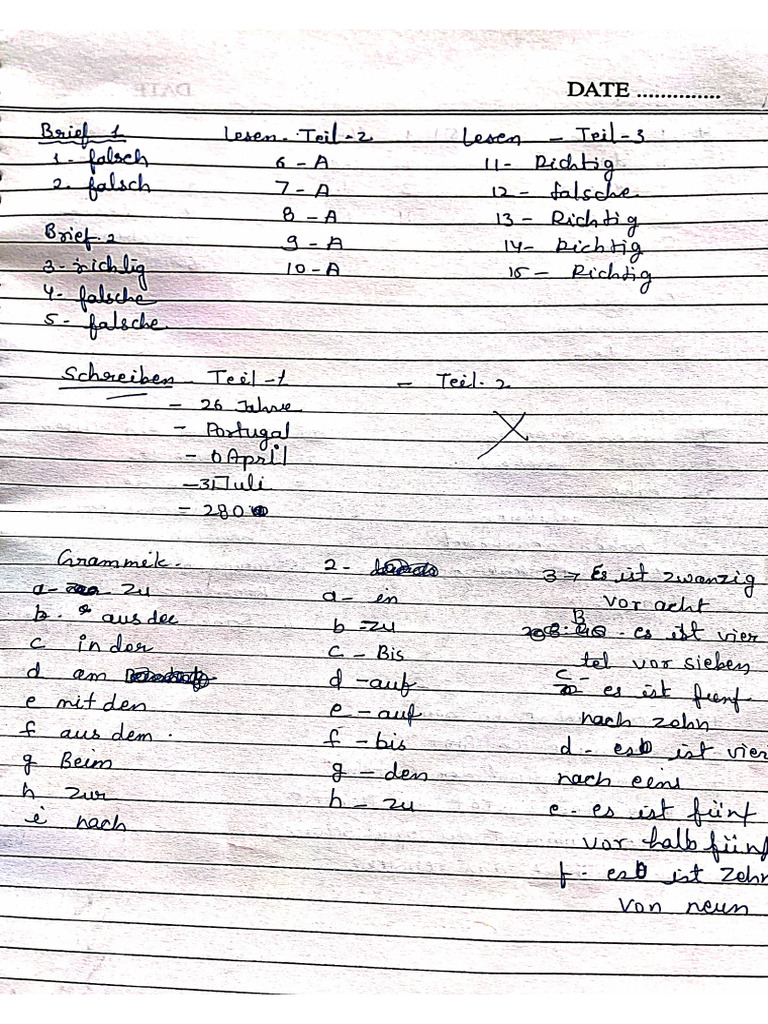 DATE ..............
Brief 1
1 - falsch
2. falsch
Brief 2
3 - richtig
4 - falsche
5 - falsche
Lesen - Teil - 2
6 - A
7 - A
8 - A
9 - A
10 - A
Lesen - Teil - 3
11 - Richtig
12 - falsche
13 - Richtig
14 - Richtig
15 - Richtig
Schreiben - Teil - 1
- 26 Jahre
- Portugal
- 0 April
- 31 Juli
- 280
- Teil - 2
Grammik.
a - zu
b. aus der
c in der
d am
e mit den
f aus dem.
g Beim
h zur
i nach
2 -
a - in
b = zu
c - Bis
d - auf
e - auf
f - bis
g - den
h - zu
3 → Es ist zwanzig
vor acht
B - es ist vier
tel vor sieben
c - es ist fünf
nach zehn
d - es ist vier
nach eens
e - es ist fünf
vor halb fünf
f - es ist Zehn
von neun